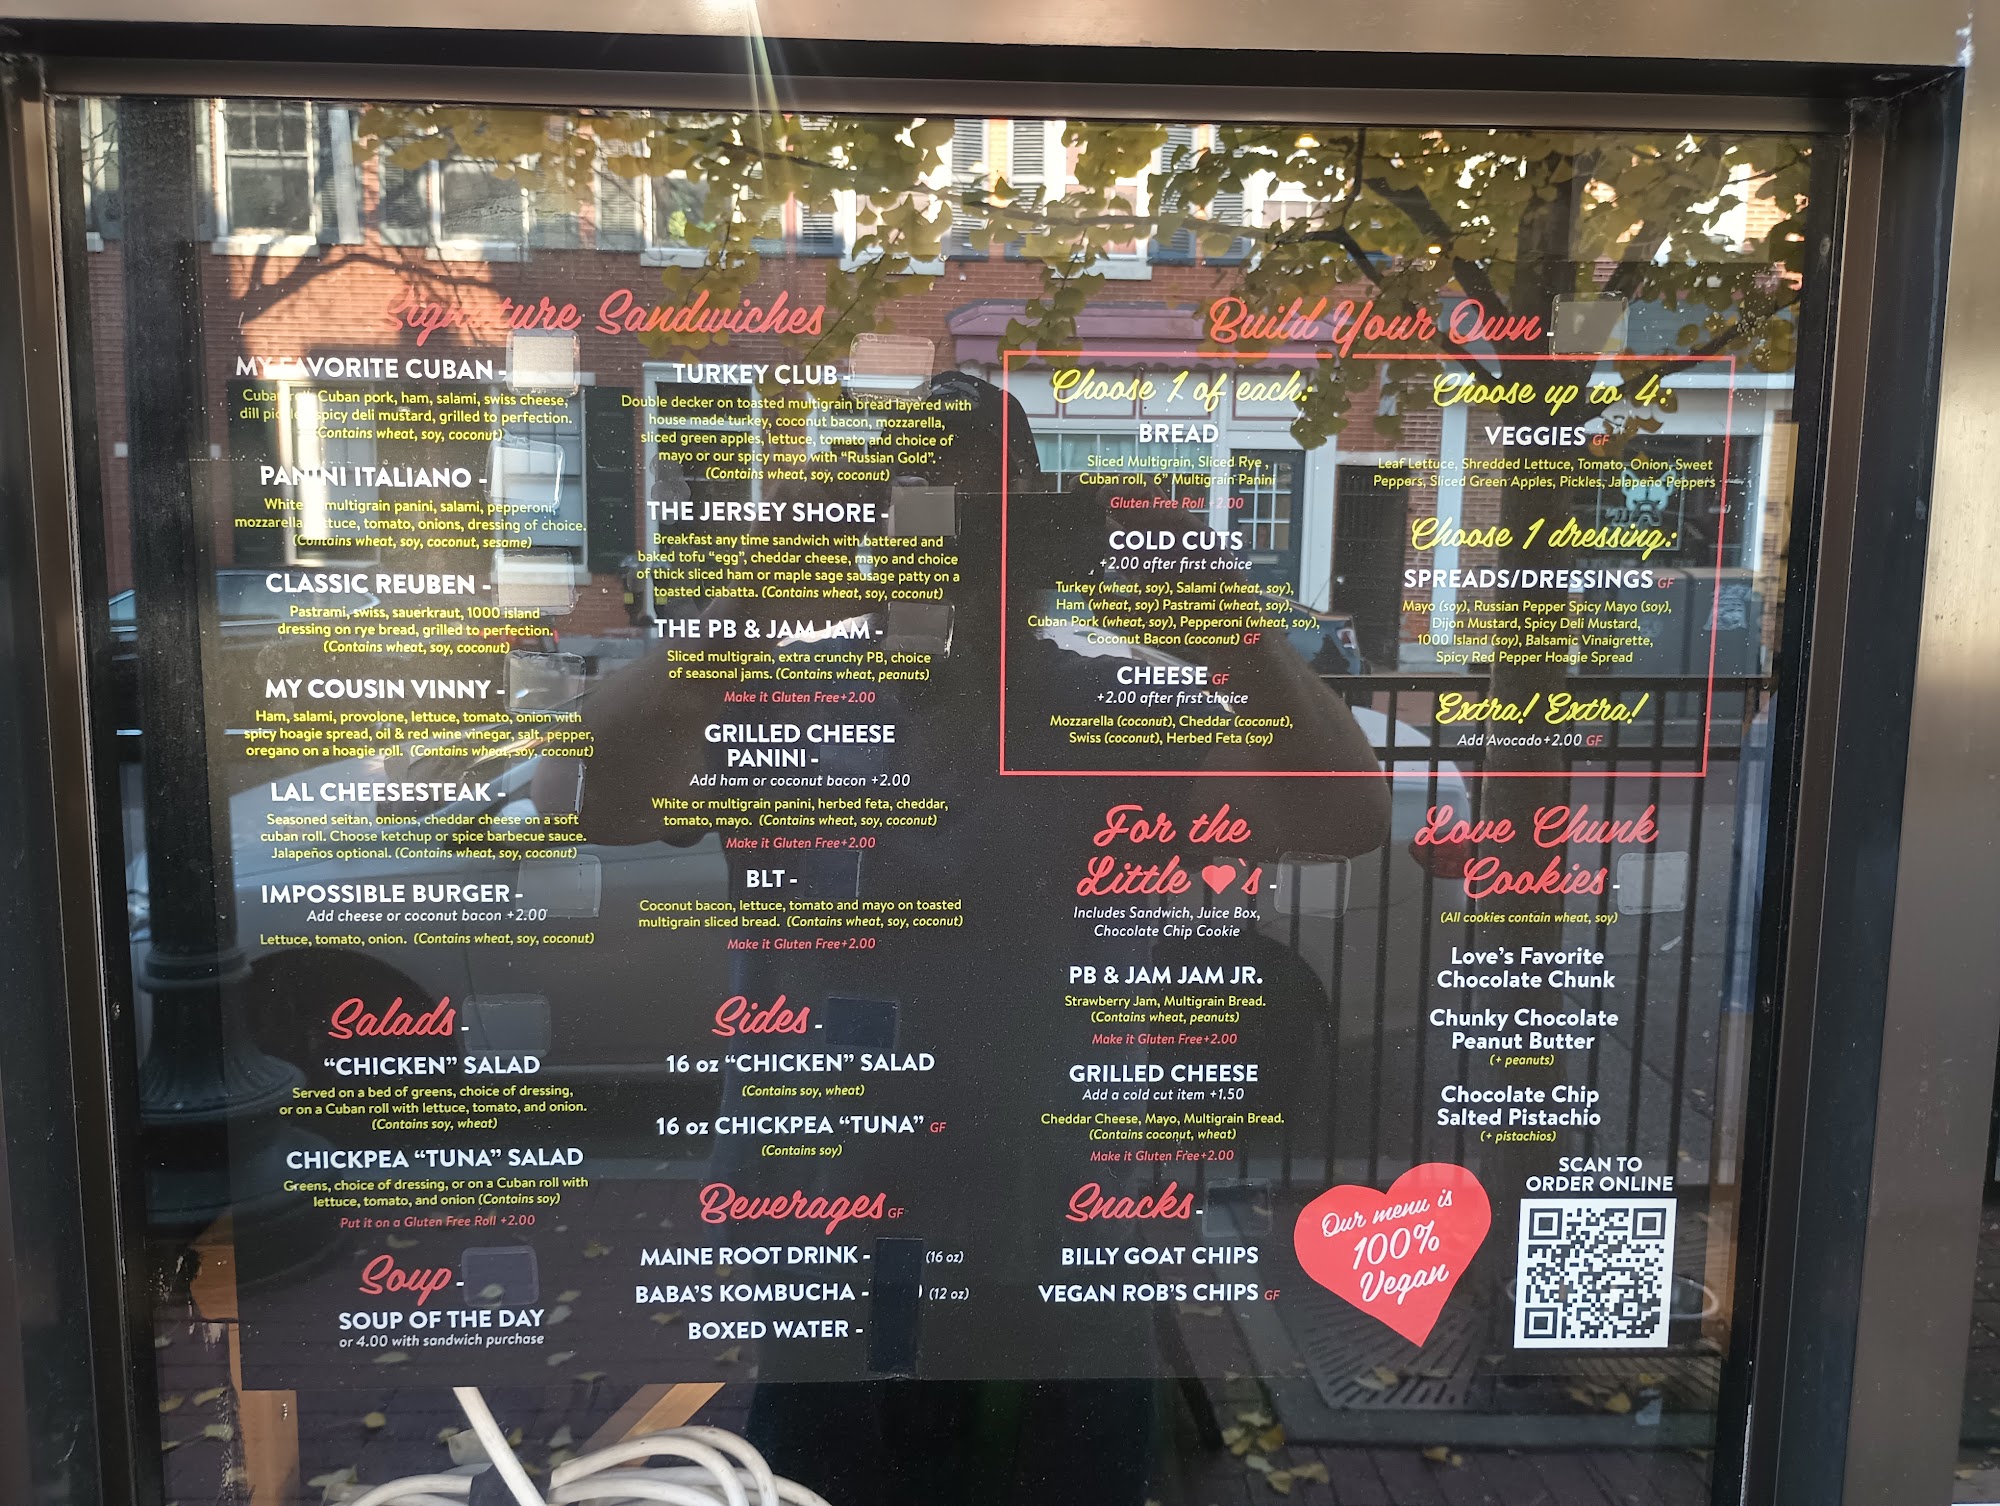 Signature Sandwiches
MY FAVORITE CUBAN -
Cuban roll, Cuban pork, ham, salami, swiss cheese,
dill pickle, spicy deli mustard, grilled to perfection.
(Contains wheat, soy, coconut)
PANINI ITALIANO -
White multigrain panini, salami, pepperoni,
mozzarella, lettuce, tomato, onions, dressing of choice.
(Contains wheat, soy, coconut, sesame)
CLASSIC REUBEN -
Pastrami, swiss, sauerkraut, 1000 island
dressing on rye bread, grilled to perfection.
(Contains wheat, soy, coconut)
MY COUSIN VINNY -
Ham, salami, provolone, lettuce, tomato, onion with
spicy hoagie spread, oil & red wine vinegar, salt, pepper,
oregano on a hoagie roll. (Contains wheat, soy, coconut)
LAL CHEESESTEAK -
Seasoned seitan, onions, cheddar cheese on a soft
cuban roll. Choose ketchup or spice barbecue sauce.
Jalapeños optional. (Contains wheat, soy, coconut)
IMPOSSIBLE BURGER -
Add cheese or coconut bacon +2.00
Lettuce, tomato, onion. (Contains wheat, soy, coconut)
TURKEY CLUB -
Double decker on toasted multigrain bread layered with
house made turkey, coconut bacon, mozzarella,
sliced green apples, lettuce, tomato and choice of
mayo or our spicy mayo with "Russian Gold".
(Contains wheat, soy, coconut)
THE JERSEY SHORE -
Breakfast any time sandwich with battered and
baked tofu "egg", cheddar cheese, mayo and choice
of thick sliced ham or maple sage sausage patty on a
toasted ciabatta. (Contains wheat, soy, coconut)
THE PB & JAM JAM -
Sliced multigrain, extra crunchy PB, choice
of seasonal jams. (Contains wheat, peanuts)
Make it Gluten Free+2.00
GRILLED CHEESE
PANINI -
Add ham or coconut bacon +2.00
White or multigrain panini, herbed feta, cheddar,
tomato, mayo. (Contains wheat, soy, coconut)
Make it Gluten Free+2.00
BLT -
Coconut bacon, lettuce, tomato and mayo on toasted
multigrain sliced bread. (Contains wheat, soy, coconut)
Make it Gluten Free+2.00
Salads -
"CHICKEN" SALAD
Served on a bed of greens, choice of dressing,
or on a Cuban roll with lettuce, tomato, and onion.
(Contains soy, wheat)
CHICKPEA "TUNA" SALAD
Greens, choice of dressing, or on a Cuban roll with
lettuce, tomato, and onion (Contains soy)
Put it on a Gluten Free Roll +2.00
Soup -
SOUP OF THE DAY
or 4.00 with sandwich purchase
Sides -
16 oz "CHICKEN" SALAD
(Contains soy, wheat)
16 oz CHICKPEA "TUNA" GF
(Contains soy)
Beverages GF
MAINE ROOT DRINK - (16 oz)
BABA'S KOMBUCHA - (12 oz)
BOXED WATER -
Build Your Own -
Choose 1 of each:
BREAD
Sliced Multigrain, Sliced Rye,
Cuban roll, 6" Multigrain Panini
Gluten Free Roll +2.00
COLD CUTS
+2.00 after first choice
Turkey (wheat, soy), Salami (wheat, soy),
Ham (wheat, soy) Pastrami (wheat, soy),
Cuban Pork (wheat, soy), Pepperoni (wheat, soy),
Coconut Bacon (coconut) GF
CHEESE GF
+2.00 after first choice
Mozzarella (coconut), Cheddar (coconut),
Swiss (coconut), Herbed Feta (soy)
Choose up to 4:
VEGGIES GF
Leaf Lettuce, Shredded Lettuce, Tomato, Onion, Sweet
Peppers, Sliced Green Apples, Pickles, Jalapeño Peppers
Choose 1 dressing:
SPREADS/DRESSINGS GF
Mayo (soy), Russian Pepper Spicy Mayo (soy),
Dijon Mustard, Spicy Deli Mustard,
1000 Island (soy), Balsamic Vinaigrette,
Spicy Red Pepper Hoagie Spread
Extra! Extra!
Add Avocado+2.00 GF
For the
Little ♥'s -
Includes Sandwich, Juice Box,
Chocolate Chip Cookie
PB & JAM JAM JR.
Strawberry Jam, Multigrain Bread.
(Contains wheat, peanuts)
Make it Gluten Free+2.00
GRILLED CHEESE
Add a cold cut item +1.50
Cheddar Cheese, Mayo, Multigrain Bread.
(Contains coconut, wheat)
Make it Gluten Free+2.00
Snacks -
BILLY GOAT CHIPS
VEGAN ROB'S CHIPS GF
Love Chunk
Cookies -
(All cookies contain wheat, soy)
Love's Favorite
Chocolate Chunk
Chunky Chocolate
Peanut Butter
(+ peanuts)
Chocolate Chip
Salted Pistachio
(+ pistachios)
Our menu is
100%
Vegan
SCAN TO
ORDER ONLINE